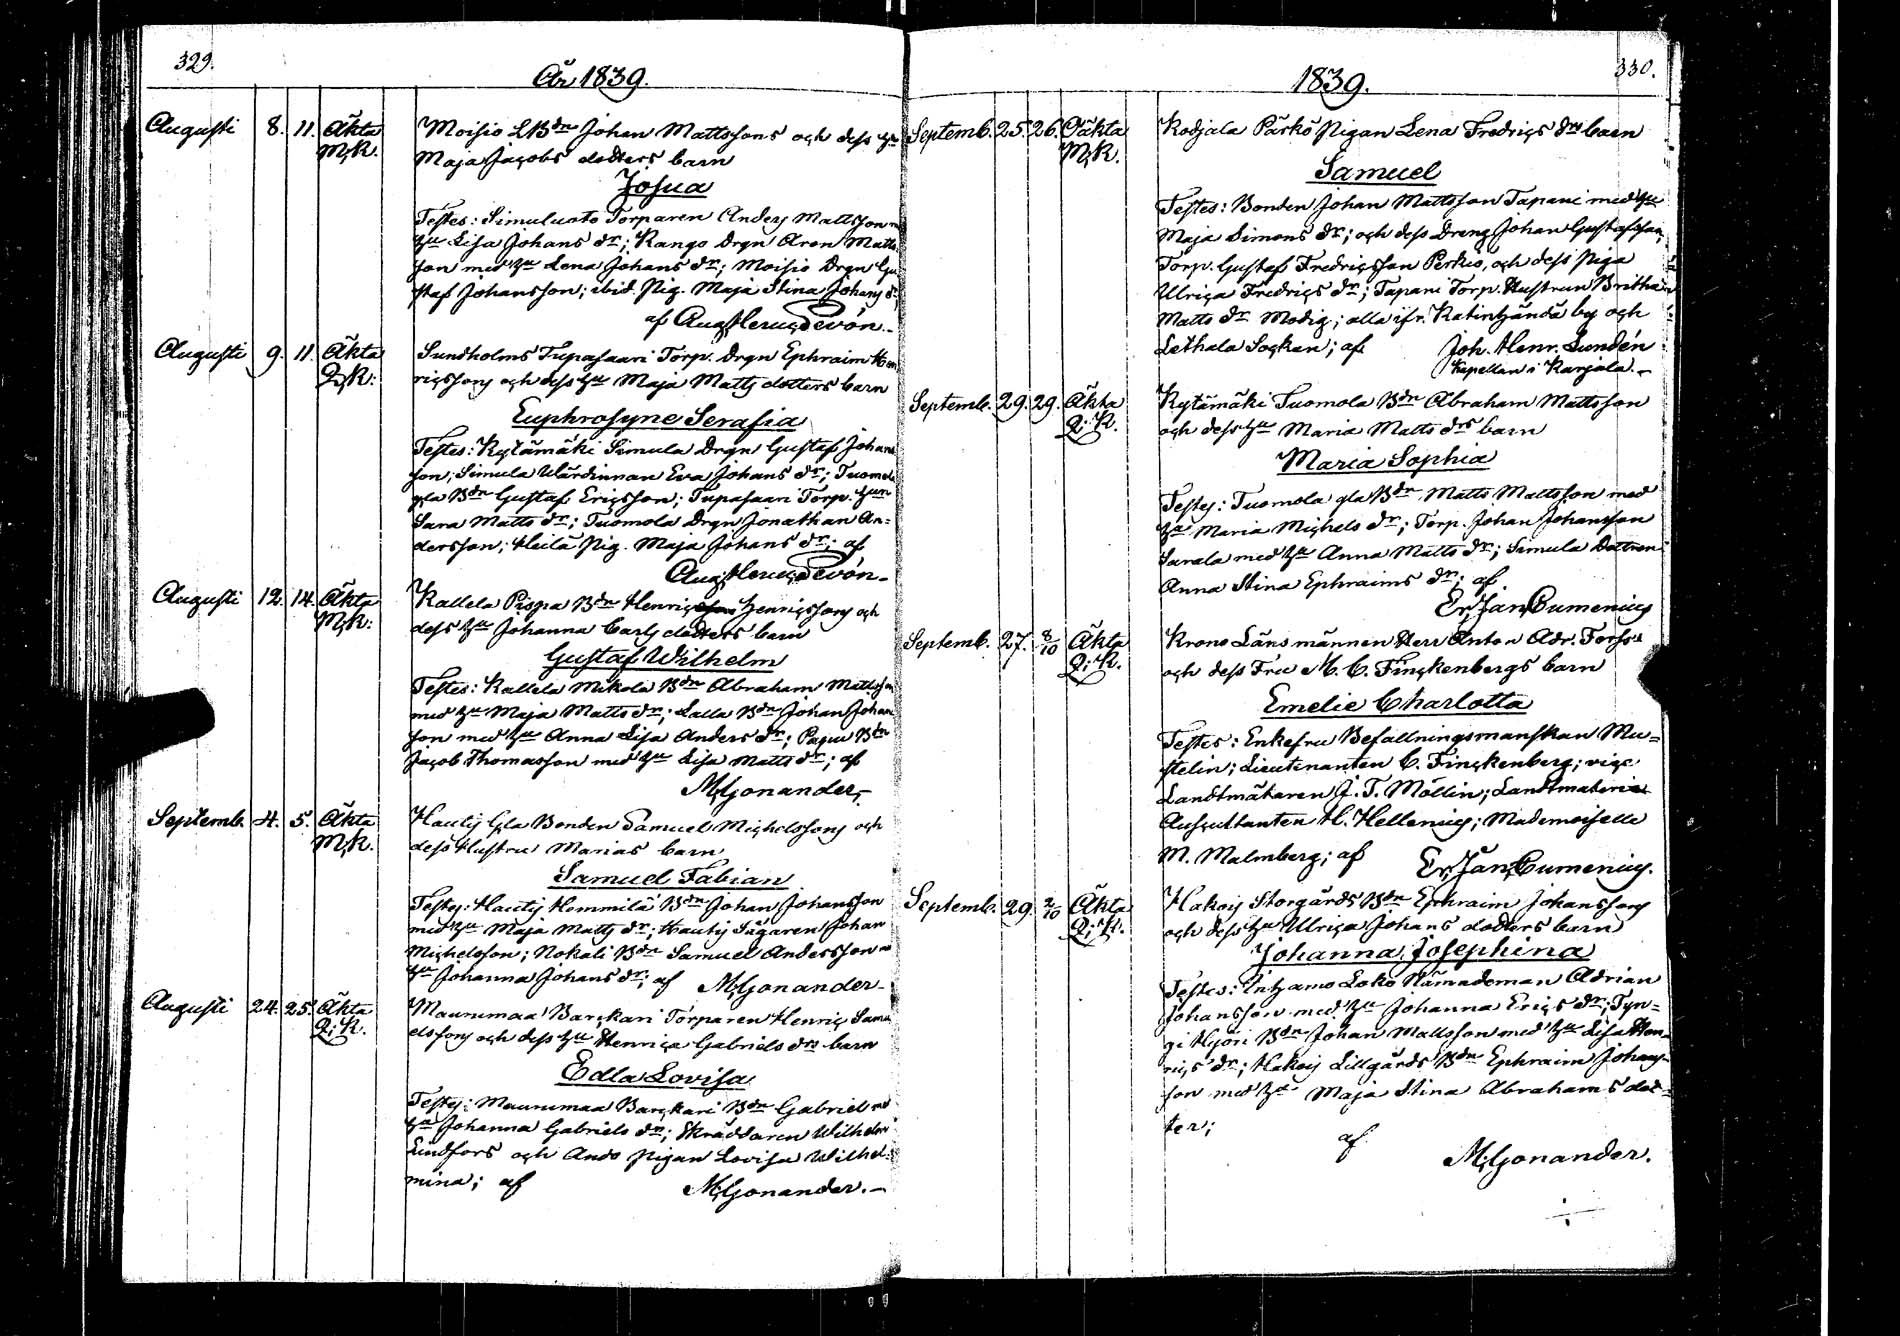 329.
År 1839.
Augusti 8. 11. Äkta Moisio LBdn Johan Mattssons och dess hu
M;K. Maja Jacobs dotters barn
Josua
Testes: Simuluoto Torparen Anders Mattsson m
hu Lisa Johans dr; Kango Drgn Aron Matts
son med hu Lena Johans dr; Moisio Drgn Gu
staf Johansson; ibid. Pig. Maja Stina Johans dr
af Aug. Henr. Devón.
Augusti 9. 11. Äkta Sundholms Tupasaari Torp. Drgn Ephraim Hen
Q;K: ricssons och dess hu Maja Matts dotters barn
Euphrosyne Serafia
Testes: Kytämäki Simula Drgn Gustaf Johans
son; Simula Wärdinnan Eva Johans dr; Tuomola
gla Bdn Gustaf Ericsson; Tupasaari Torp. hun
Sara Matts dr; Tuomola Drgn Jonathan An=
dersson; Heilä Pig. Maja Johans dr; af
Aug. Henr. Devón
Augusti 12. 14. Äkta Kallela Pispa Bdn Henric Henricssons och
M;K: dess hu Johanna Carls dotters barn
Gustaf Wilhelm
Testes: Kallela Mikola Bdn Abraham Mattsson
med hu Maja Matts dr; Lalla Bdn Johan Johans
son med hu Anna Lisa Anders dr; Bdn
Jacob Thomasson med hu Lisa Matts dr; af
M. Gonander
Septemb. 4. 5. Äkta Hautis Gla Bonden Samuel Michelssons och
M;K. dess Hustru Marias barn
Samuel Fabian
Testes: Hautis Hemmilä Bdn Johan Johansson
med hu Maja Matts dr; Hautis Sågaren Johan
Michelsson; Nokali Bdn Samuel Andersson m
hu Johanna Johans dr; af M. Gonander
Augusti 24. 25. Äkta Maurumaa Banckari Torparen Henric Samu
Q;K. elssons och dess hu Henrica Gabriels drs barn
Edla Lovisa
Testes: Maurumaa Banckari Bdn Gabriel
hu Johanna Gabriels dr; Skräddaren Wilhelm
Lindfors och Ando Pigan Lovisa Wilhel=
mina; af M. Gonander.
330.
1839.
Septemb. 25. 26. Oäkta Kodjala Pärkö Pigan Lena Fredrics drs barn
M;K.
Samuel
Testes: Bonden Johan Mattsson Tapani med hu
Maja Simons dr; och dess Dreng Johan Gustafsson,
Torp. Gustaf Fredricsson Perkio, och dess Piga
Ulrica Fredrics dr; Tapani Torp. Hustrun Britha
Matts dr Modig; alla ifr. Katinhändä by och
Lethala Socken; af Joh. Henr. Lundén
Kapellan i Karjala.
Septemb. 29. 29. Äkta Kytämäki Tuomola Bdn Abraham Mattsson
Q;K. och dess hu Maria Matts drs barn
Maria Sophia
Testes: Tuomola gla Bdn Matts Mattsson med
hu Maria Michels dr; Torp. Johan Johansson
Sarala med hu Anna Matts dr; Simula Dottren
Anna Stina Ephraims dr; af
Er. Jan. Cumenius
Septemb. 27. 8/10 Äkta Krono Länsmannen Herr Anton Adr. Forss
Q;K. och dess Fru M. C. Finckenbergs barn
Emelie Charlotta
Testes: Enkefru Befallningsmanskan Mu=
stelin; Lieutenanten C. Finckenberg; vice
Landtmätaren J. T. Möllin; Landtmäteri
Auscultanten H. Hellenius; Mademoiselle
M. Malmberg; af Er. Jan. Cumenius.
Septemb. 29. 2/10 Äkta Hakois Storgårds Bdn Ephraim Johanssons
Q;K. och dess hu Ulrica Johans dotters barn
Johanna Josephina
Testes: Untamo Loko Nämndeman Adrian
Johansson med hu Johanna Erics dr; Pyn=
gi Hyöri Bdn Johan Mattsson med hu Lisa Hen=
rics dr; Hakois Lillgårds Bdn Ephraim Johans=
son med hu Maja Stina Abrahams dot=
ter;
af
M. Gonander.